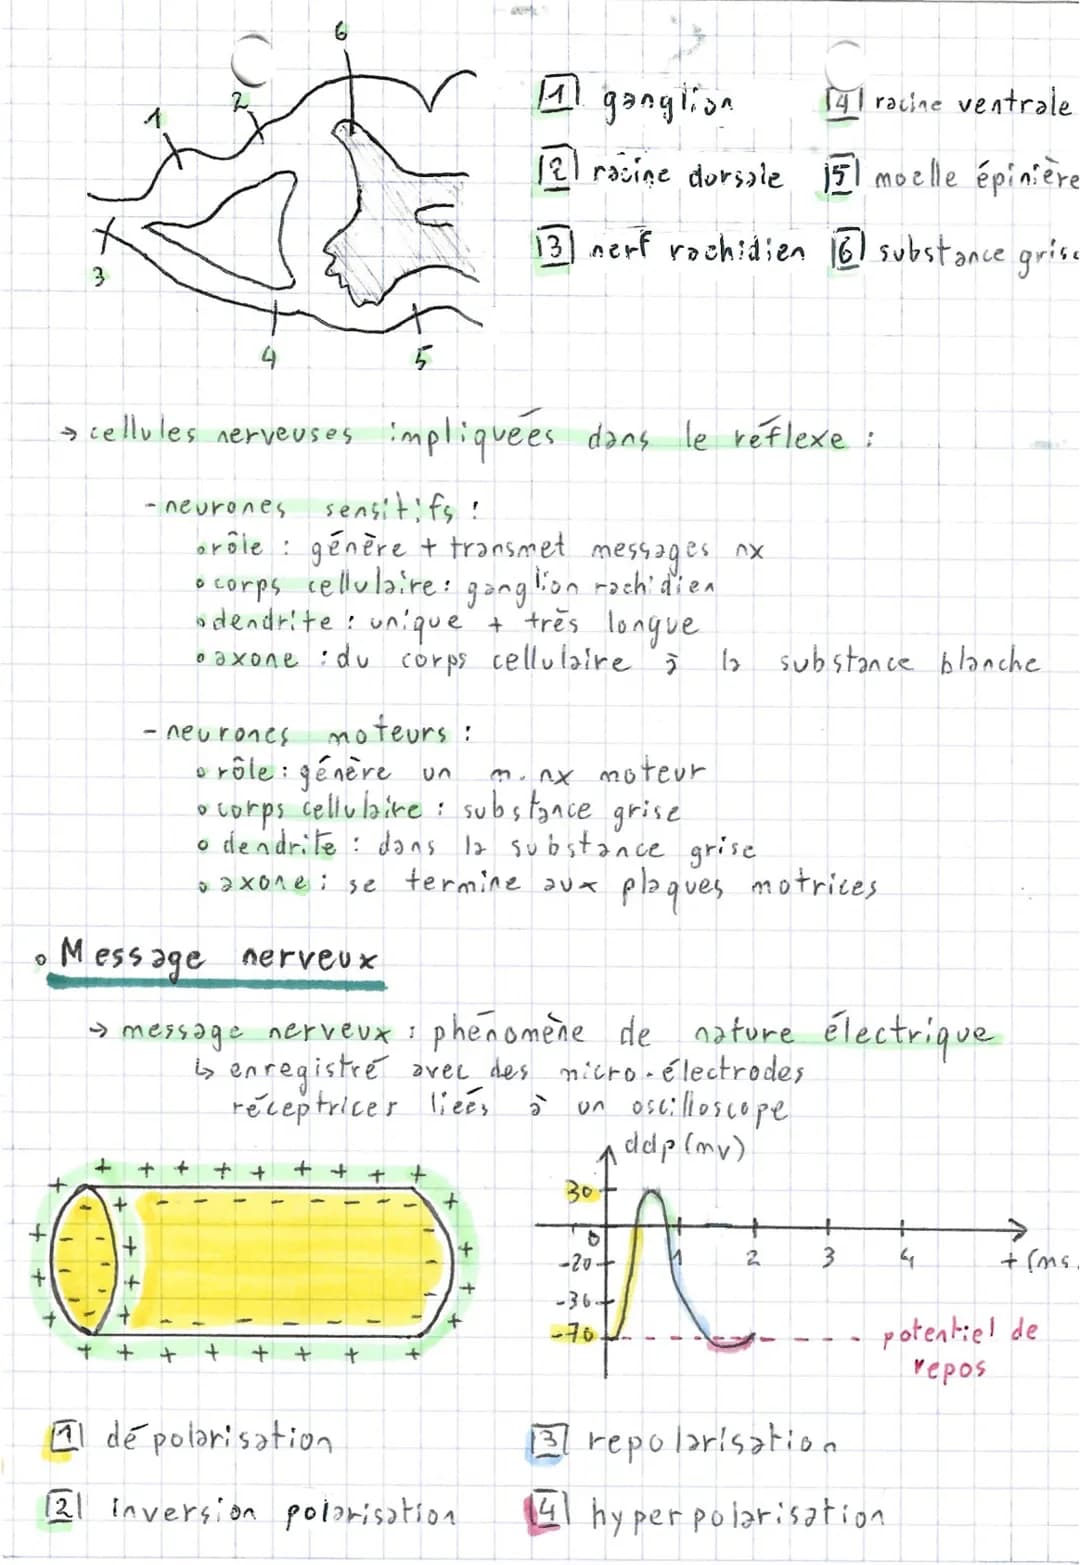 6
2
1
3
4
5
1 ganglion
4 racine ventrale
2 racine dorsale
5 moelle épinière
3 nerf rachidien
6 substance grise
→ cellules nerveuses impliquées dans le réflexe :
- neurones sensitifs :
• rôle : génère + transmet messages nx
• corps cellulaire : ganglion rachidien
• dendrite : unique + très longue
• axone : du corps cellulaire à la substance blanche
- neurones moteurs :
• rôle : génère un m. nx moteur
• corps cellulaire : substance grise
• dendrite : dans la substance grise
• axone : se termine aux plaques motrices
• Message nerveux
→ message nerveux : phénomène de nature électrique
↳ enregistré avec des micro-électrodes
réceptrices liées à un oscilloscope
ddp (mv)
30
0
1 2 3 4 t (ms.
-20
-36
-70
potentiel de
repos
1 dépolarisation
3 repolarisation
2 inversion polarisation
4 hyperpolarisation